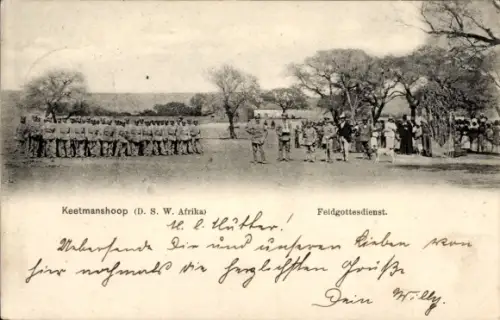 Keetmanshoop (D. S. W. Afrika)
Feldgottesdienst.
M. l. Mütter!
Uebersende Dir und unseren Lieben von
hier nochmals die herzlichsten Grüße
Dein Willy.